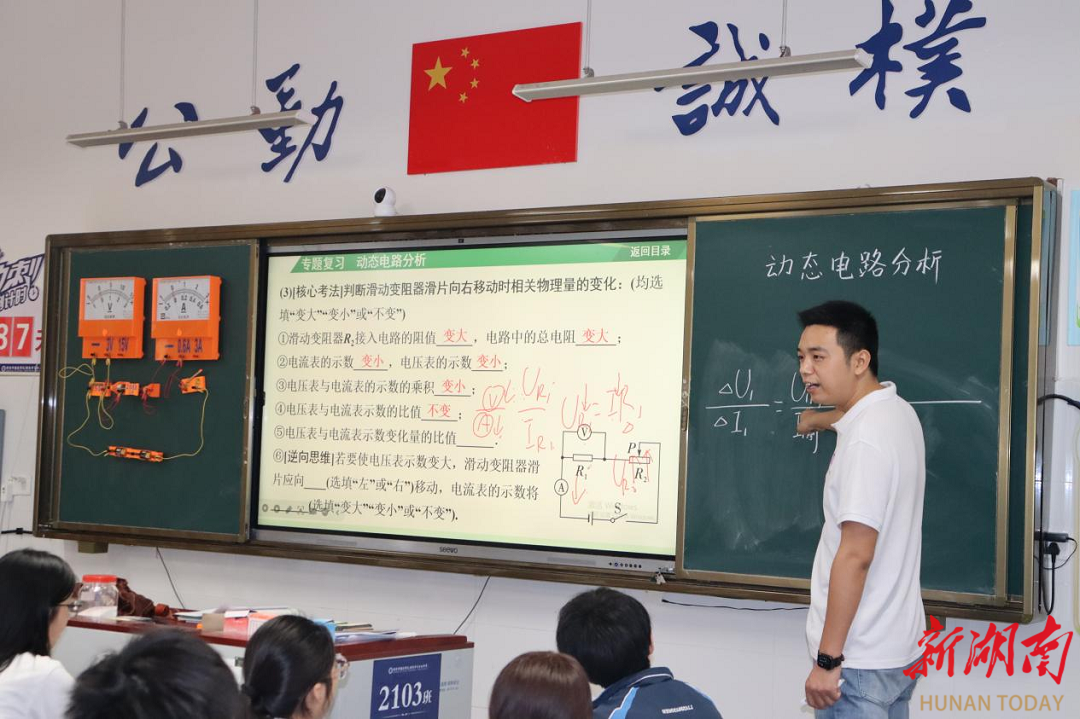 公 勁 誠 樸
专题复习 动态电路分析 返回目录
(3)[核心考法]判断滑动变阻器滑片向右移动时相关物理量的变化：(均选
填“变大”“变小”或“不变”)
①滑动变阻器R₂接入电路的阻值 变大 ，电路中的总电阻 变大 ；
②电流表的示数 变小 ，电压表的示数 变小 ；
③电压表与电流表的示数的乘积 变小 ；
④电压表与电流表示数的比值 不变 ；
⑤电压表与电流表示数变化量的比值____．
⑥[逆向思维]若要使电压表示数变大，滑动变阻器滑
片应向____(选填“左”或“右”)移动，电流表的示数将
____(选填“变大”“变小”或“不变”).
V
P
R₁ R₂
A
S
seewo
动态电路分析
△U₁
△I₁
=
V
3V 15V
A
0.6A 3A
87天
2103班
新湖南
HUNAN TODAY